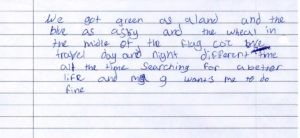 We got green as a land and the
blue as a sky and the wheal in
the midle of the flag cot
travel day and night different time
all the time searching for a better
life and my g wants me to do
fine